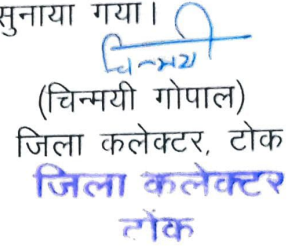 सुनाया गया।
चिन्मयी
(चिन्मयी गोपाल)
जिला कलेक्टर, टोक
जिला कलेक्टर
टोंक